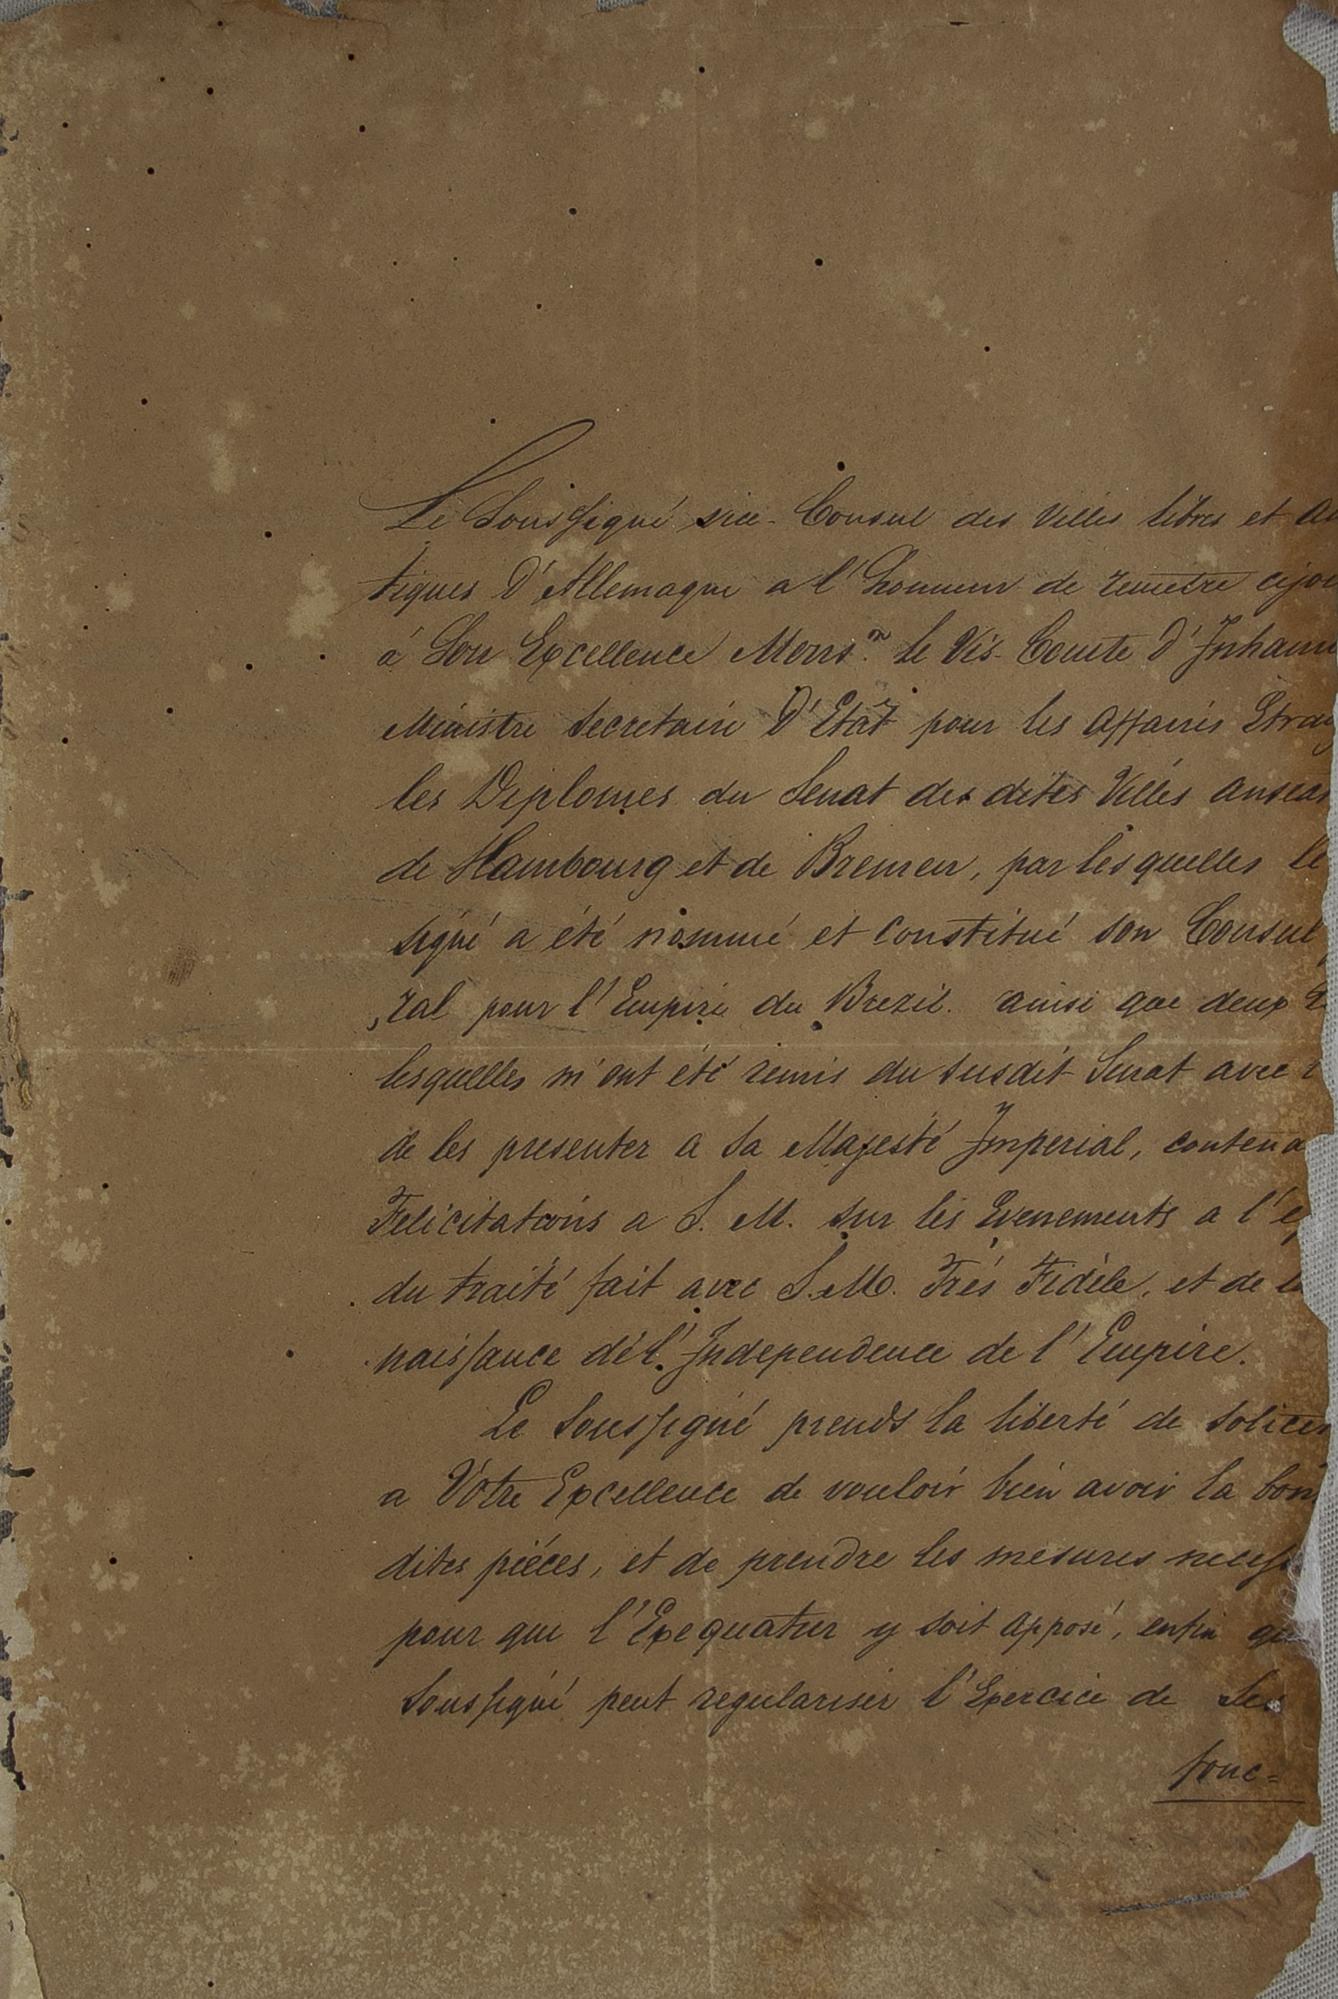 Le Soussigné vice-Consul des Villes libres et An
tiques D'Allemagne a l'honneur de remetre cijoi
á Son Excellence Monsr. le Vis-Comte D'Inham
Ministre Secretaire D'Etât pour les Affaires Etran
les Diplomes du Senat des dites Villes anseat
de Hambourg et de Bremen, par lesquelles le
signé a été nommé et constitué son Consul
ral pour l'Empire du Brezil. ainsi que deux
lesquelles m'ont été remis du susdit Senat avec
de les presenter a Sa Majesté Imperial, contena
Felicitations a S. M. sur les Evenements a l'ép
du traité fait avec S. M. Trés Fidèle, et de la
naissance dél'Independence de l'Empire.
Le Soussigné prends la liberté de Solicit
a Votre Excellence de vouloir bien avoir la bon
dites piéces, et de prendre les mesures necess
pour que l'Exequatur y soit apposé, enfin qu
Soussigné peut regulariser l'Exercice de Ses
fonc=